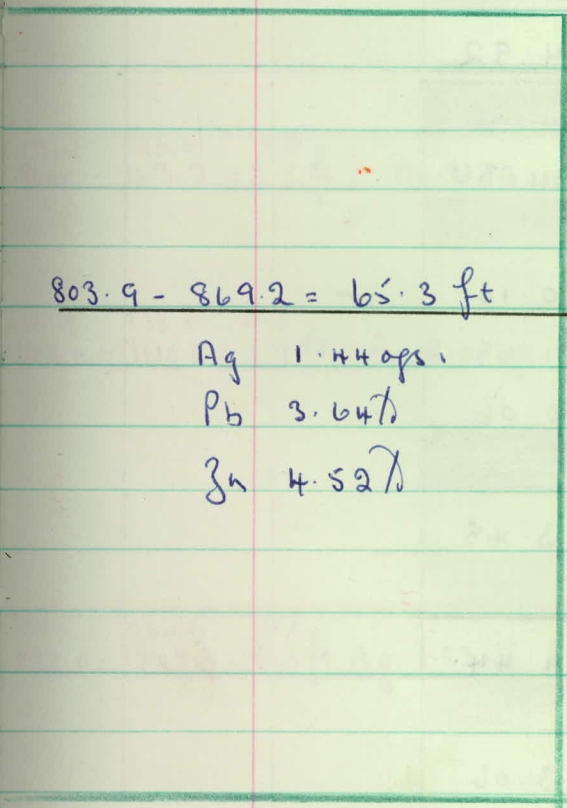 803.9 - 869.2 = 65.3 ft
Ag 1.44 ozs.
Pb 3.64%
Zn 4.52%